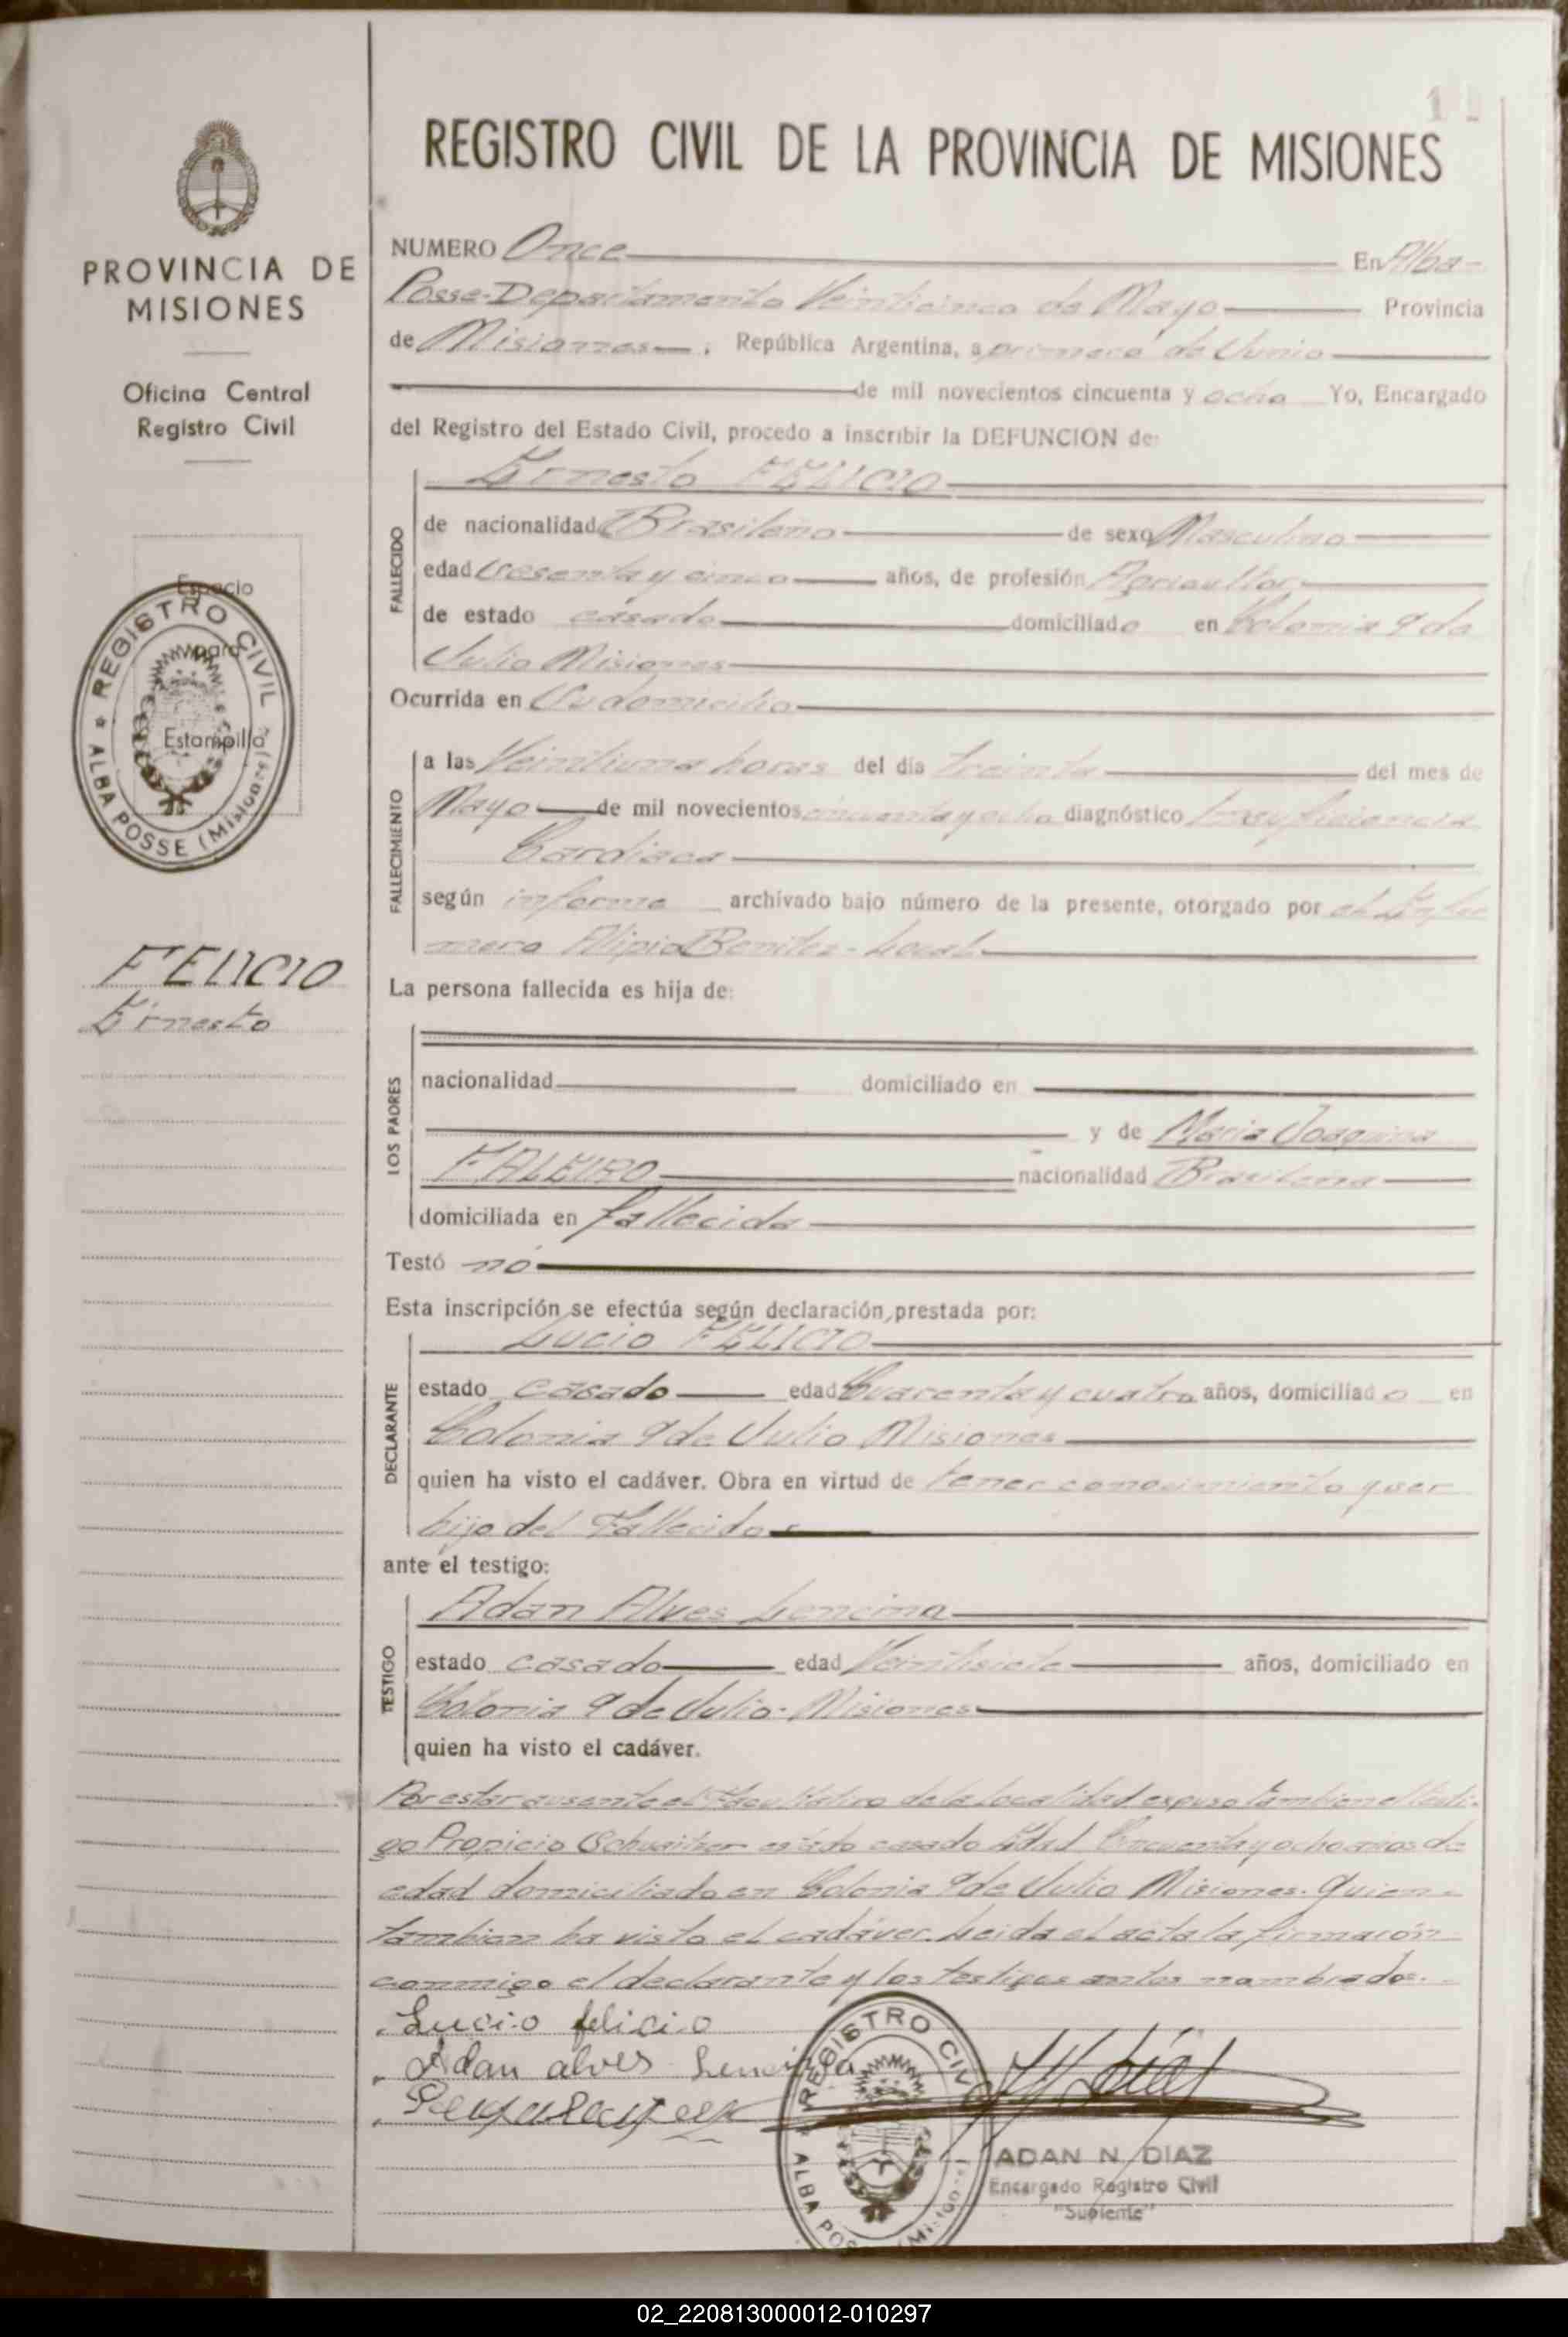 11
REGISTRO CIVIL DE LA PROVINCIA DE MISIONES
PROVINCIA DE
MISIONES
Oficina Central
Registro Civil
Espacio
para
Estampilla
REGISTRO CIVIL
ALBA POSSE (Misiones)
FELICIO
Ernesto
NUMERO Once En Alba-
Posse-Departamento Veinticinco de Mayo Provincia
de Misiones, República Argentina, a primero de Junio
de mil novecientos cincuenta y ocho Yo, Encargado
del Registro del Estado Civil, procedo a inscribir la DEFUNCION de:
Ernesto FELICIO
FALLECIDO
de nacionalidad Brasileño de sexo Masculino
edad sesenta y cinco años, de profesión Agricultor
de estado casado domiciliado en Colonia 9 de
Julio Misiones
Ocurrida en Su domicilio
FALLECIMIENTO
a las Veintiuna horas del día treinta del mes de
Mayo de mil novecientos cincuenta y ocho diagnóstico Insuficiencia
Cardiaca
según informe archivado bajo número de la presente, otorgado por el Enfer
mero Alipio Benitez - Local
La persona fallecida es hija de:
LOS PADRES
nacionalidad domiciliado en
y de Maria Joaquina
FALEIRO nacionalidad Brasileña
domiciliada en fallecida
Testó no
Esta inscripción se efectúa según declaración prestada por:
Lucio FELICIO
DECLARANTE
estado casado edad Cuarenta y cuatro años, domiciliado en
Colonia 9 de Julio Misiones
quien ha visto el cadáver. Obra en virtud de tener conocimiento y ser
hijo del Fallecido
ante el testigo:
Adan Alves Lencina
TESTIGO
estado casado edad Veintisiete años, domiciliado en
Colonia 9 de Julio - Misiones
quien ha visto el cadáver.
Por estar ausente el Facultativo de la Localidad expuso tambien el testi-
go Propicio Schwaitzer estado casado Edad Cincuenta y ocho años de
edad domiciliado en Colonia 9 de Julio Misiones. Quien
tambien ha visto el cadáver. Leida el acta la firmarón
conmigo el declarante y los testigos antes nombrados.
Lucio felicio
Adan alves Lencina
REGISTRO CIVIL
ALBA POSSE (Misiones)
ADAN N. DIAZ
Encargado Registro Civil
"Suplente"
02_220813000012-010297